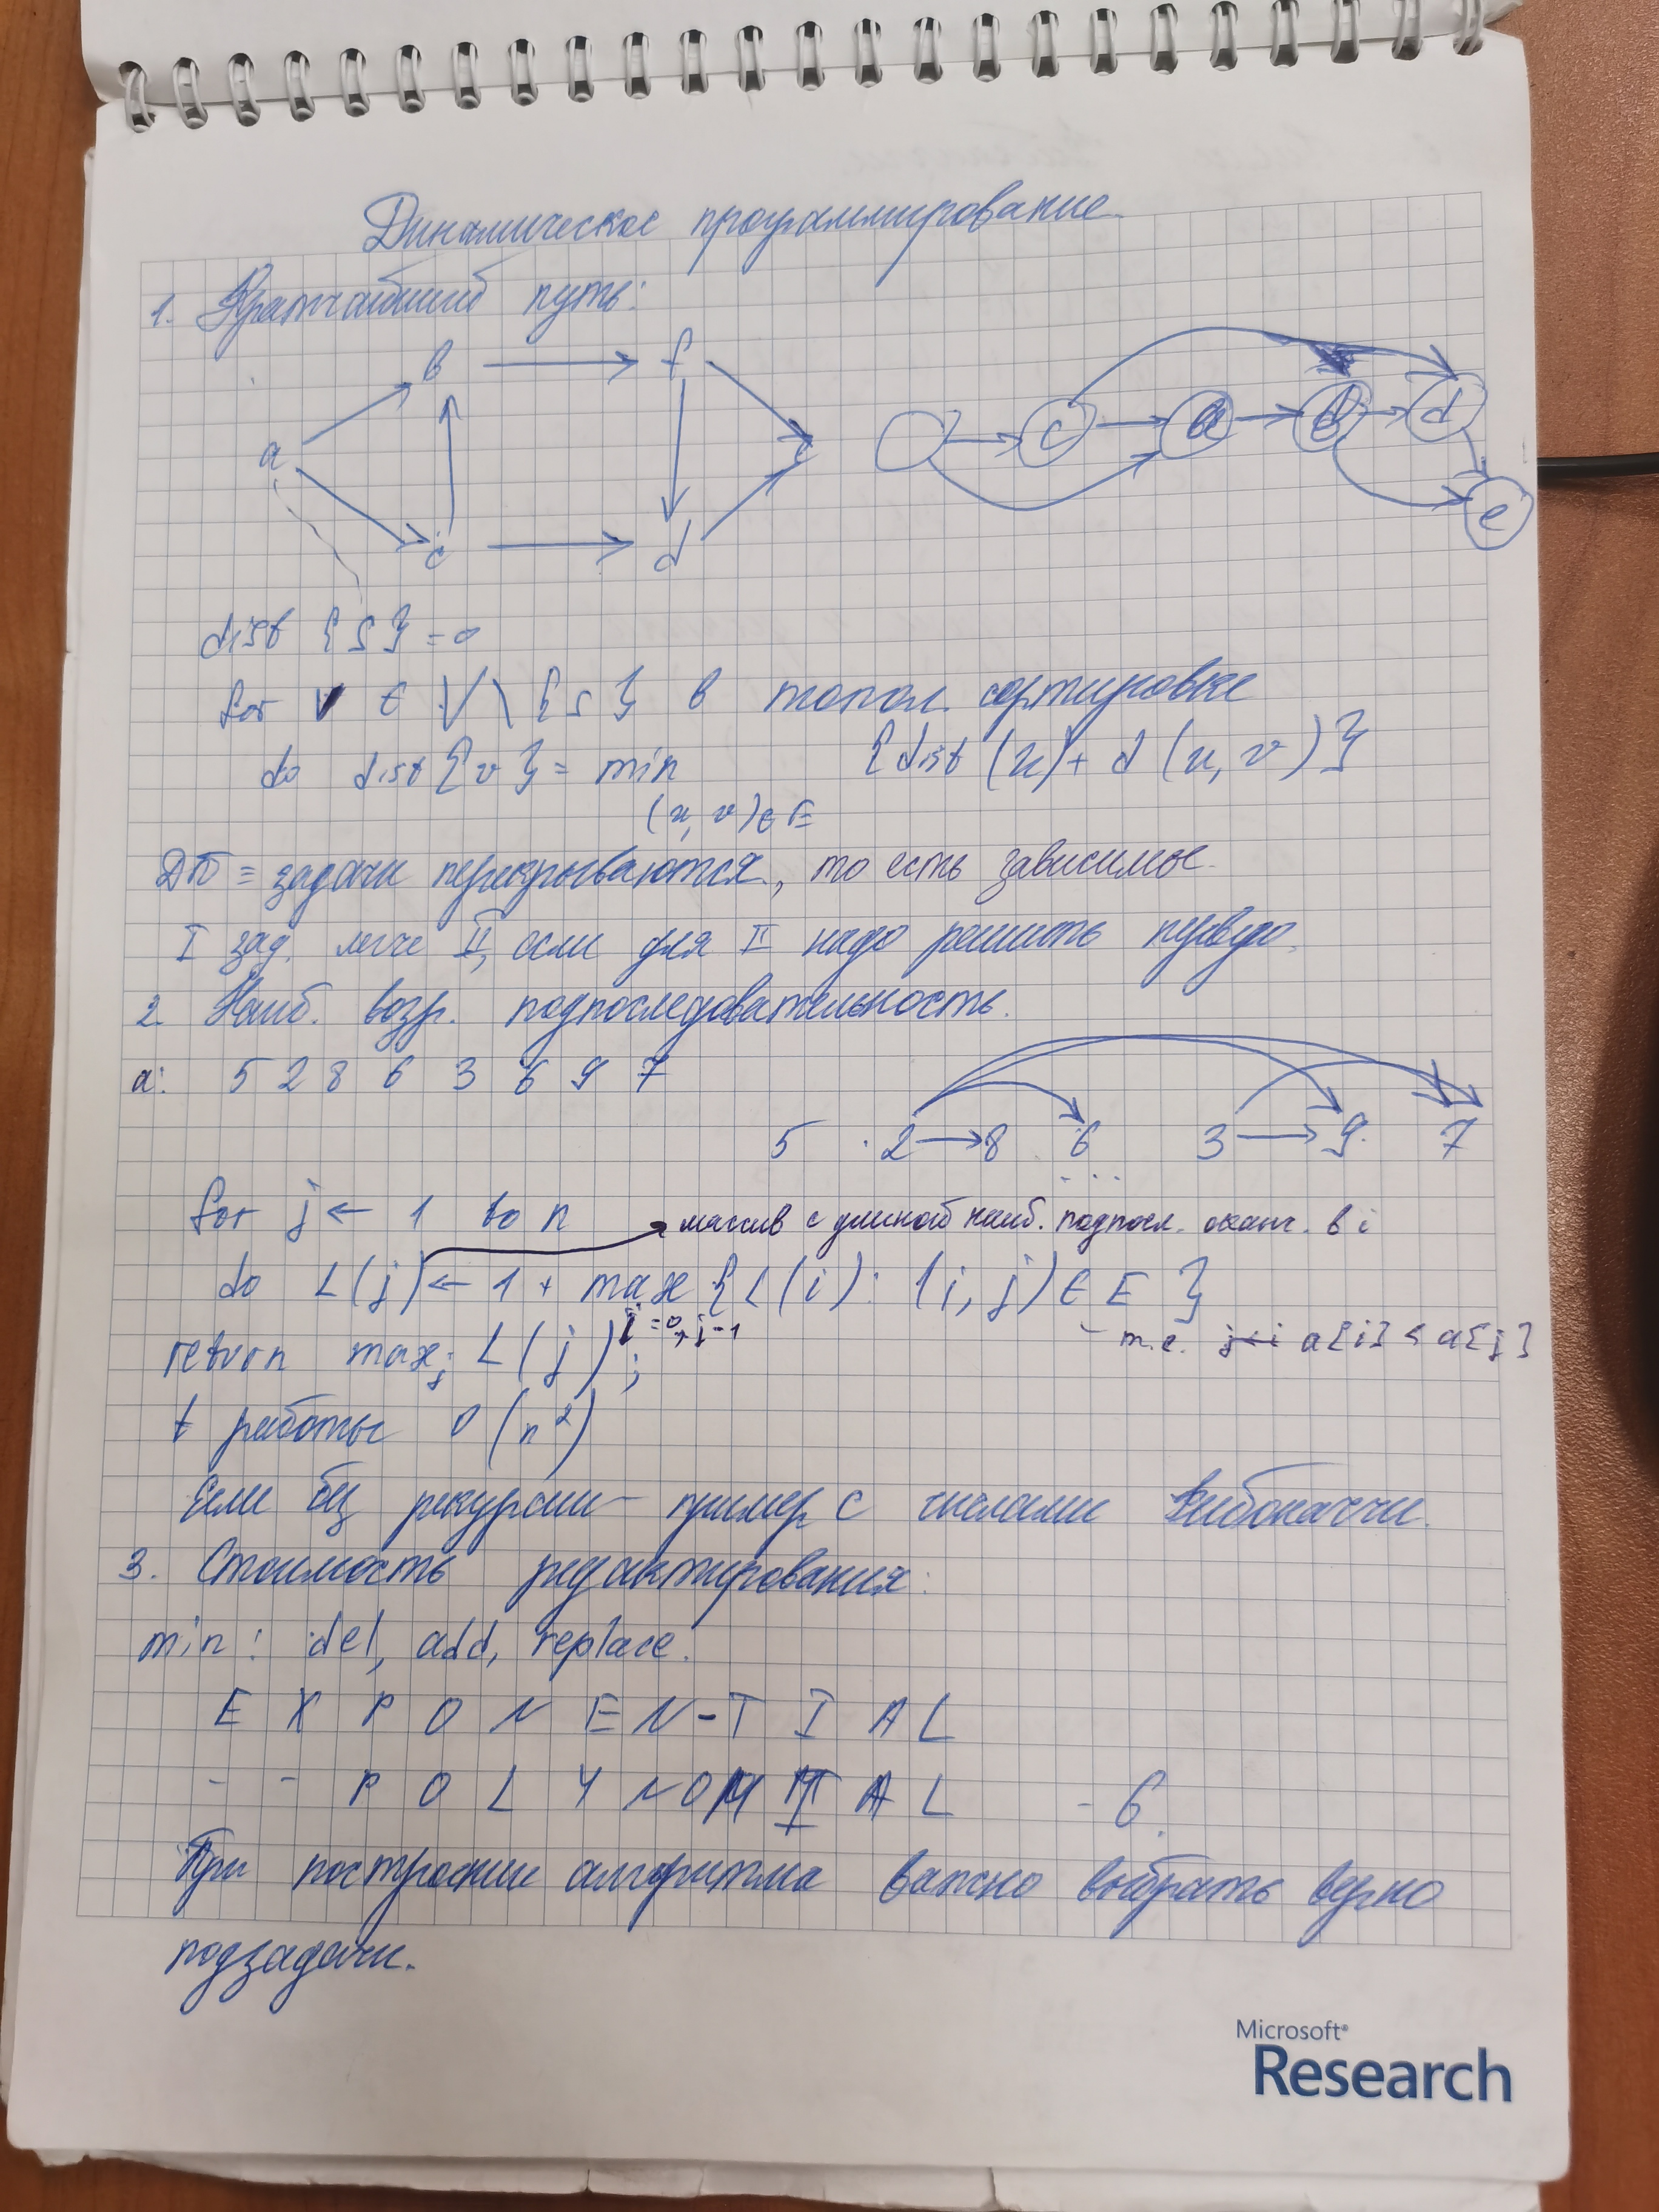 Динамическое программирование
1. Кратчайший путь:
b f
a
c d
c a b d
e
dist {s} = 0
for v ∈ V \ {s} в топол. сортировке
do dist {v} = min {dist (u) + d (u, v)}
(u, v) ∈ E
ДП ≡ задачи перекрываются, то есть зависимые.
I зад. легче II, если для II надо решить первую.
2. Наиб. возр. подпоследовательность.
a: 5 2 8 6 3 6 9 7
5 2 8 6 3 9 7
...
for j ← 1 to n
массив с длиной наиб. подпосл. оканч. в i
do L(j) ← 1 + max {L(i): (i, j) ∈ E }
i = 0, j-1
т.е. j<i a[i] < a[j]
return max j L(j);
t работы O(n²)
Если без рекурсии - пример с числами Фибоначчи.
3. Стоимость редактирования:
min: del, add, replace.
E X P O N E N - T I A L
- - P O L Y N O M I A L - 6.
При построении алгоритма важно выбрать верно
подзадачи.
Microsoft®
Research